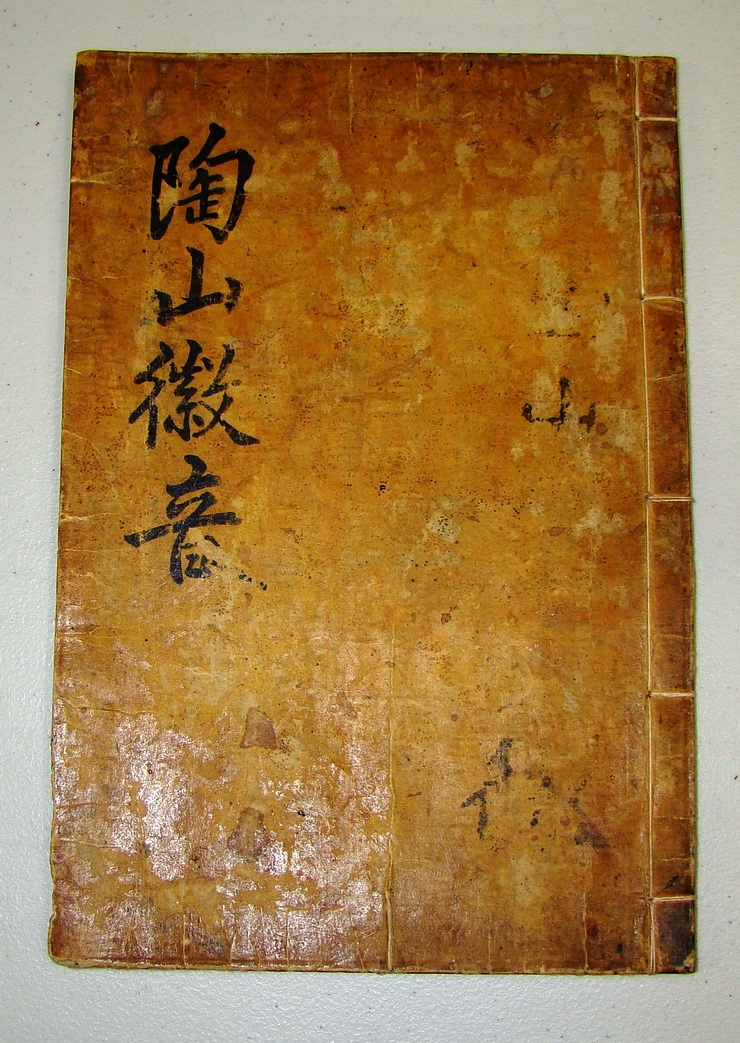 山
陶山徽音